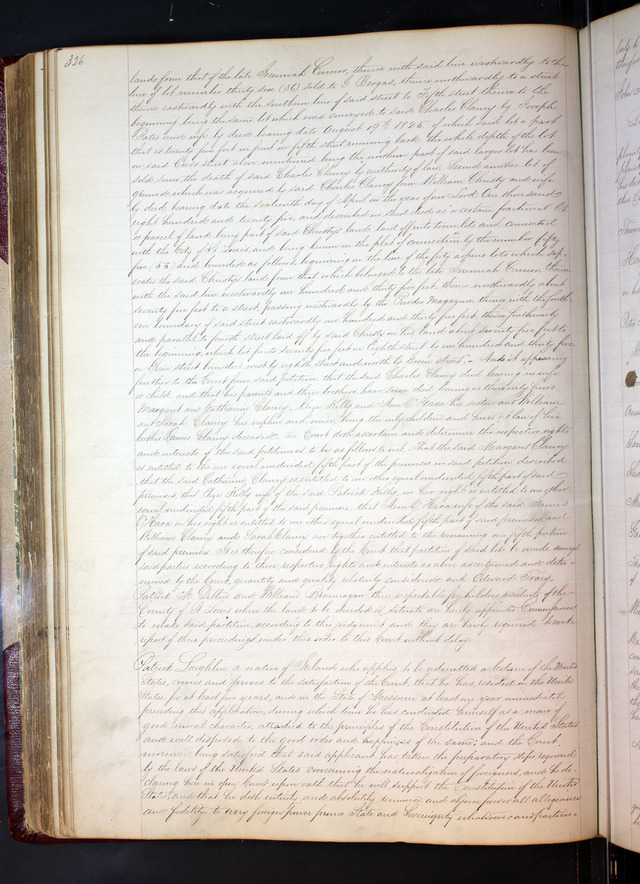 326
lands form that of the late Jeremiah Connor, thence with said line westwardly to the
line of lot number thirty six (36) sold to P Bergas, thence northwardly to a street
thence eastwardly with the southern line of said street to Fifth street thence to the
beginning being the same lot which was conveyed to said Charles Clancy by Joseph
and wife by deed bearing date August 19th 1825 of which said lot a part
that is twenty five feet in front on fifth street running back the whole depth of the lot
on said Cross street above mentioned being the northern part of said larger lot has been
sold since the death of said Charles Clancy by authority of law. Second another lot of
ground which was acquired by said Charles Clancy from William Christy and wife
by deed bearing date the sixteenth day of April in the year of our Lord One thousand
eight hundred and twenty five, and described in said deed as a certain fractional lot
or parcel of land being part of said Christys land laid off into town lots and connected
with the City of St Louis, and being known on the plat of connection by the number fifty
five (55) and bounded as follows, beginning in the line of the forty arpens lots which sepe
rates the said Christys lands from that which belonged to the late Jeremiah Connor, thence
with the said line westwardly one hundred and thirty five feet, thence northwardly about
seventy five feet to a street, passing westwardly by the Powder Magazine, thence with the south
ern boundary of said street eastwardly one hundred and thirty five feet, thence southwardly
and parallel to fourth street laid off by said Christy on his land about seventy five feet to
the beginning, which lot fronts seventy five feet on Eighth street by one hundred and thirty five
on Green street bounded west by eighth street and north by Green street. And it appearing
further to the Court from said petition that the said Charles Clancy died leaving no wife
or child and that his parents and three brothers have since died leaving
Margaret and Catharine Clancy, Kelly and Ann O'Hara his sisters and William
and Sarah Clancy his nephew and niece being the only children and heirs at law of his
brother James Clancy deceased. The Court doth ascertain and determine the respective rights
and interests of the said petitioners to be as follows to wit. That the said Margaret Clancy
is entitled to the one equal undivided fifth part of the premises in said petition described
that the said Catharine Clancy is entitled to one other equal undivided fifth part of said
premises, that Kelly wife of the said Patrick Kelly, in her right is entitled to one other
equal undivided fifth part of the said premises, that Ann O'Hara wife of the said James
O'Hara in her right is entitled to one other equal undivided fifth part of said premises and
William Clancy and Sarah Clancy are together entitled to the remaining one fifth portion
of said premises. It is therefore considered by the Court that partition of said lots be made among
said parties according to their respective rights and interests as above ascertained and deter
mined by the Court, quantity and quality relatively considered and Edward Tracy,
Patrick W Dillon and William three respectable freeholders residents of the
County of St Louis where the lands to be divided is, situate are hereby appointed Commissioners
to make said partition according to this judgment and they are hereby required to make
report of their proceedings under this order to this Court without delay.
Patrick Loughlin a native of Ireland who applies to be admitted a Citizen of the United
States, comes and proves to the satisfaction of the Court, that he has resided in the United
States, for at least five years, and in the State of Missouri at least one year immediately
preceding this application, during which time he has conducted himself as a man of
good moral character, attached to the principles of the Constitution of the United States
and well disposed to the good order and happiness of the same; and the Court
moreover being satisfied that said applicant has taken the preparatory steps required
by the laws of the United States concerning the naturalization of foreigners, and he de
claring here in open Court upon oath that he will support the Constitution of the United
States, and that he doth entirely and absolutely renounce and abjure forever all allegiance
and fidelity to every foreign power prince State and Sovereignty whatsoever and particu